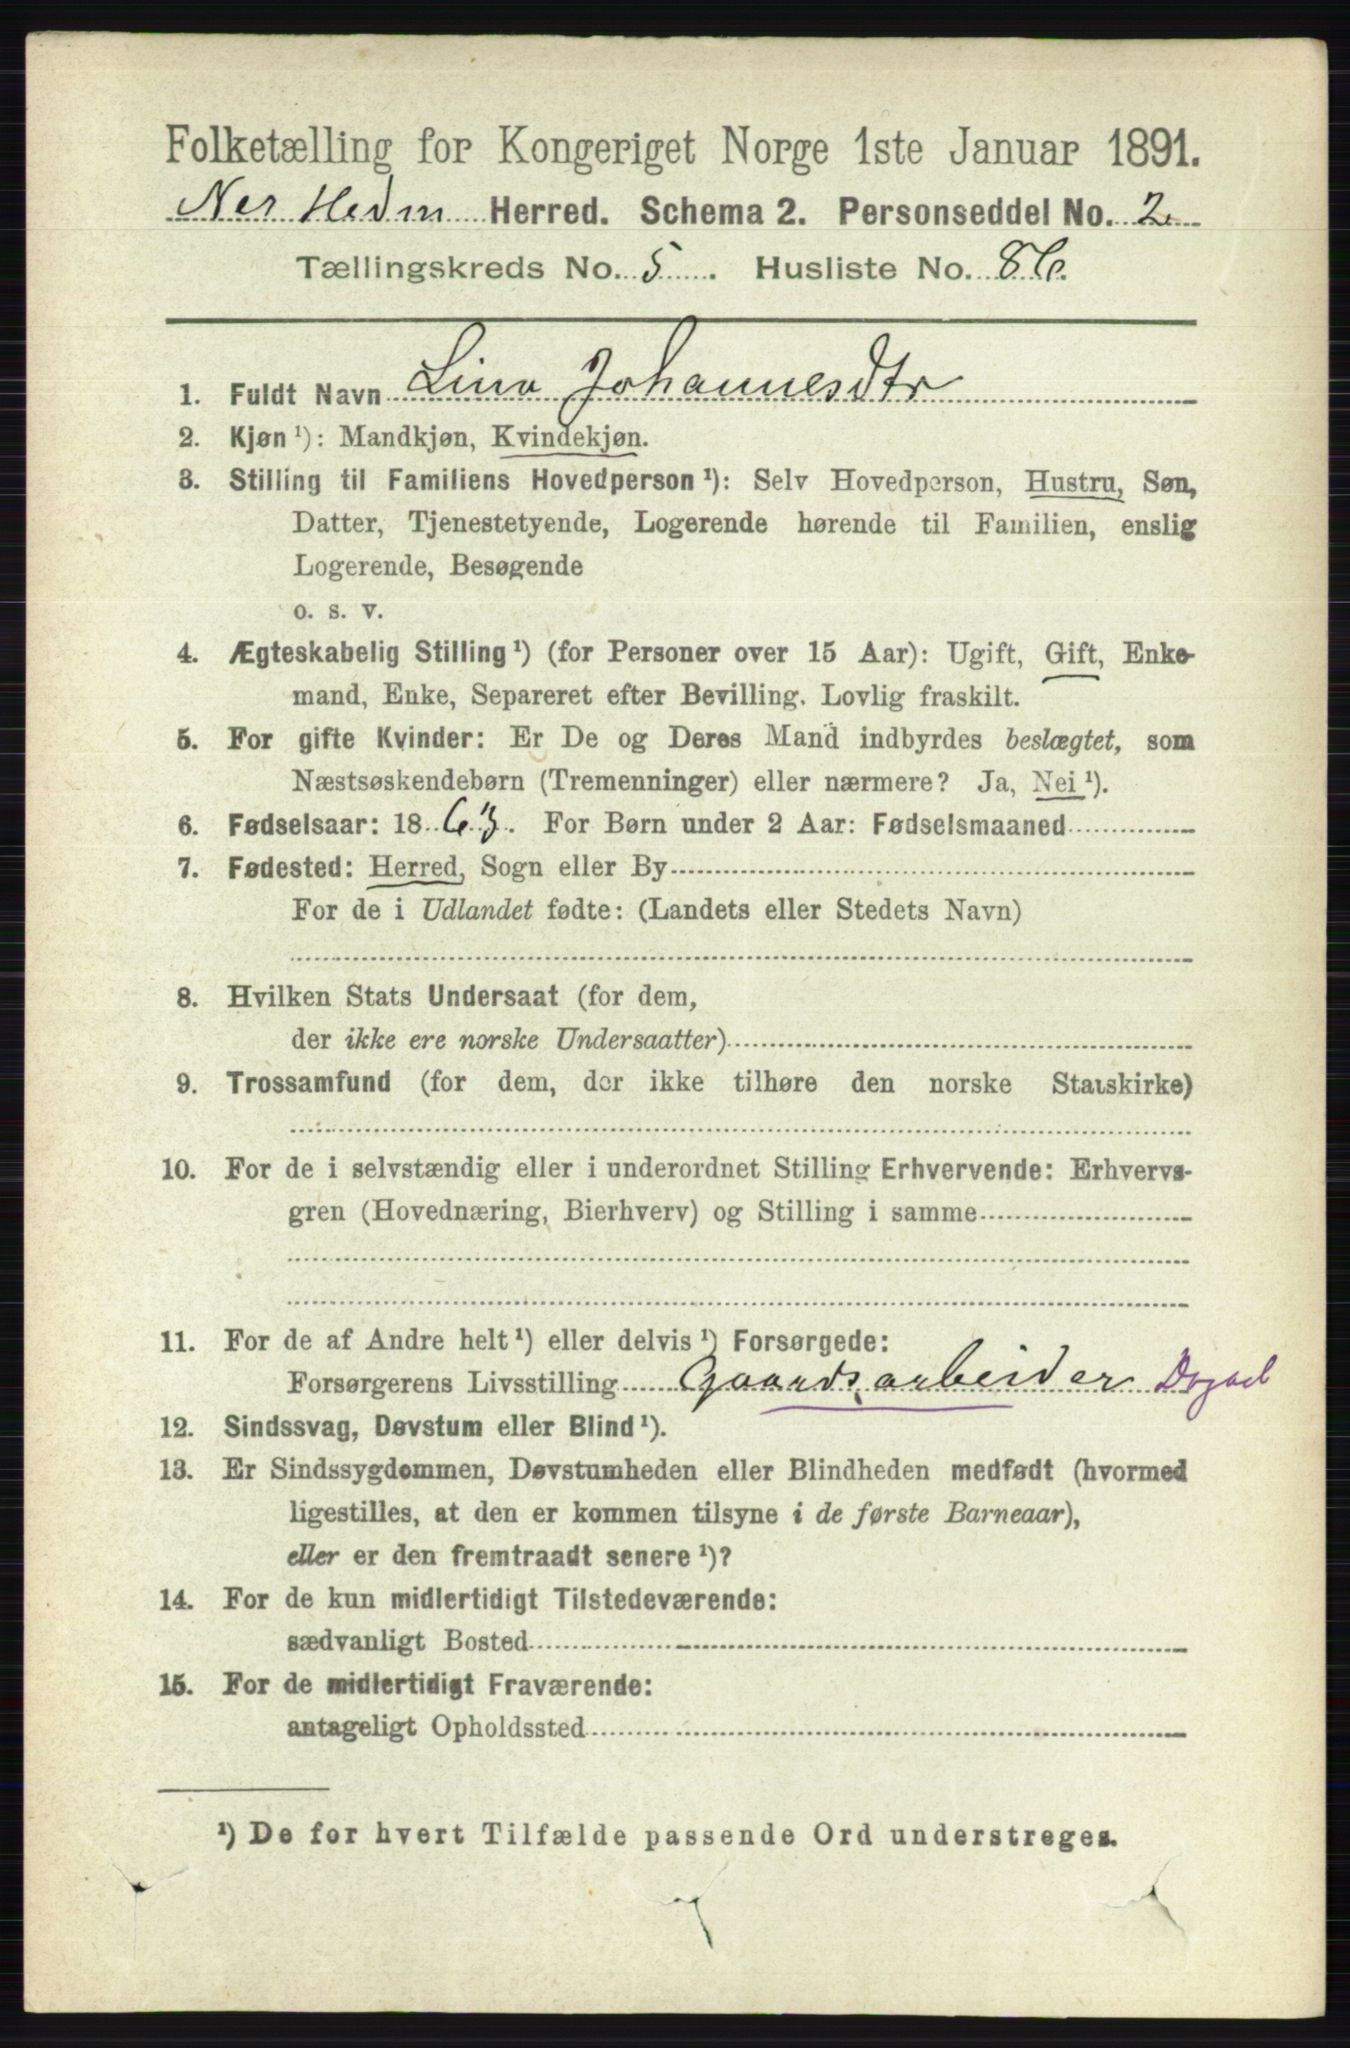 Folketælling for Kongeriget Norge 1ste Januar 1891.
Nes Hedm Herred. Schema 2. Personseddel No. 2.
Tællingskreds No. 5. Husliste No. 86.
1. Fuldt Navn Lina Johannesdtr
2. Kjøn ¹): Mandkjøn, Kvindekjøn.
3. Stilling til Familiens Hovedperson ¹): Selv Hovedperson, Hustru, Søn,
Datter, Tjenestetyende, Logerende hørende til Familien, enslig
Logerende, Besøgende
o. s. v.
4. Ægteskabelig Stilling ¹) (for Personer over 15 Aar): Ugift, Gift, Enke-
mand, Enke, Separeret efter Bevilling. Lovlig fraskilt.
5. For gifte Kvinder: Er De og Deres Mand indbyrdes beslægtet, som
Næstsøskendebørn (Tremenninger) eller nærmere? Ja, Nei ¹).
6. Fødselsaar: 1863. For Børn under 2 Aar: Fødselsmaaned
7. Fødested: Herred, Sogn eller By
For de i Udlandet fødte: (Landets eller Stedets Navn)
8. Hvilken Stats Undersaat (for dem,
der ikke ere norske Undersaatter)
9. Trossamfund (for dem, der ikke tilhøre den norske Statskirke)
10. For de i selvstændig eller i underordnet Stilling Erhvervende: Erhvervs-
gren (Hovednæring, Bierhverv) og Stilling i samme
11. For de af Andre helt ¹) eller delvis ¹) Forsørgede:
Forsørgerens Livsstilling Gaardsarbeider
12. Sindssvag, Døvstum eller Blind ¹).
13. Er Sindssygdommen, Døvstumheden eller Blindheden medfødt (hvormed
ligestilles, at den er kommen tilsyne i de første Barneaar),
eller er den fremtraadt senere ¹)?
14. For de kun midlertidigt Tilstedeværende:
sædvanligt Bosted
15. For de midlertidigt Fraværende:
antageligt Opholdssted
¹) De for hvert Tilfælde passende Ord understreges.